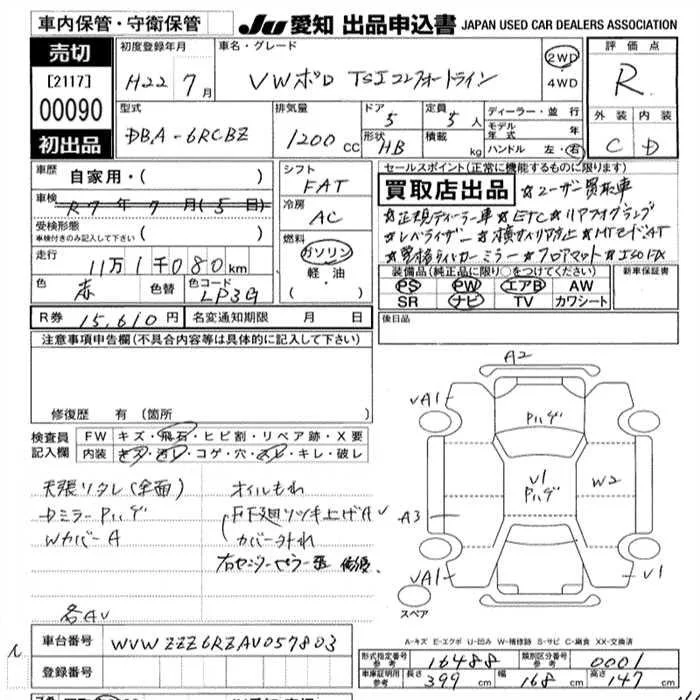 車内保管・守衛保管
JU 愛知 出品申込書 JAPAN USED CAR DEALERS ASSOCIATION
売切
[2117]
00090
初出品
初度登録年月
H22 7月
車名・グレード
VWポロ TSIコンフォートライン
2WD
4WD
評価点
R
外装 内装
C D
型式
DBA-6RCBZ
排気量
1200 CC
ドア
5
定員
5人
形状
HB
積載
kg
ディーラー・並行
モデル年式 年
ハンドル 左・右
車歴
自家用・( )
車検
R7年7月(5日)
受検形態
車検付きのみ記入して下さい ( )
走行
11万1千080km
色
赤
色替
色コード
LP3G
シフト
FAT
冷房
AC
燃料
ガソリン
軽油
・( )
セールスポイント(正常に機能するものに限ります)
買取店出品 ☆ユーザー買取車
☆正規ディーラー車 ☆ETC ☆リアフォグランプ
☆レベライザー ☆横サイドエア ☆MTモードAT
ミラー ☆フロアマット ☆ISOFIX
装備品(純正品に限り○をつけてください)
PS PW エアB AW
SR ナビ TV カワシート
新車保証書
後日品
R券 15,610円
名変通知期限 月 日
注意事項申告欄(不具合内容等は具体的に記入して下さい)
修復歴 有(箇所 )
検査員記入欄
FW キズ・飛石・ヒビ割・リペア跡・X要
内装 キズ・汚レ・コゲ・穴・スレ・キレ・破レ
天張リタレ(全面)
Dミラー Pハゲ
WカバーA
各AV
オイルもれ
F下廻リツキ上げAV
カバー外れ
A2
VA1
Pハゲ
V1
Pハゲ
W2
A3
VA1
V1
スペア
A-キズ E-エクボ U-凹み W-補修跡 S-サビ C-腐食 XX-交換済
車台番号
WVWZZZ6RZAV057803
登録番号
形式指定番号
参考
16488
類別区分番号
参考
0001
車庫証明用
参考
長さ 399 cm
幅 168 cm
高さ 147 cm